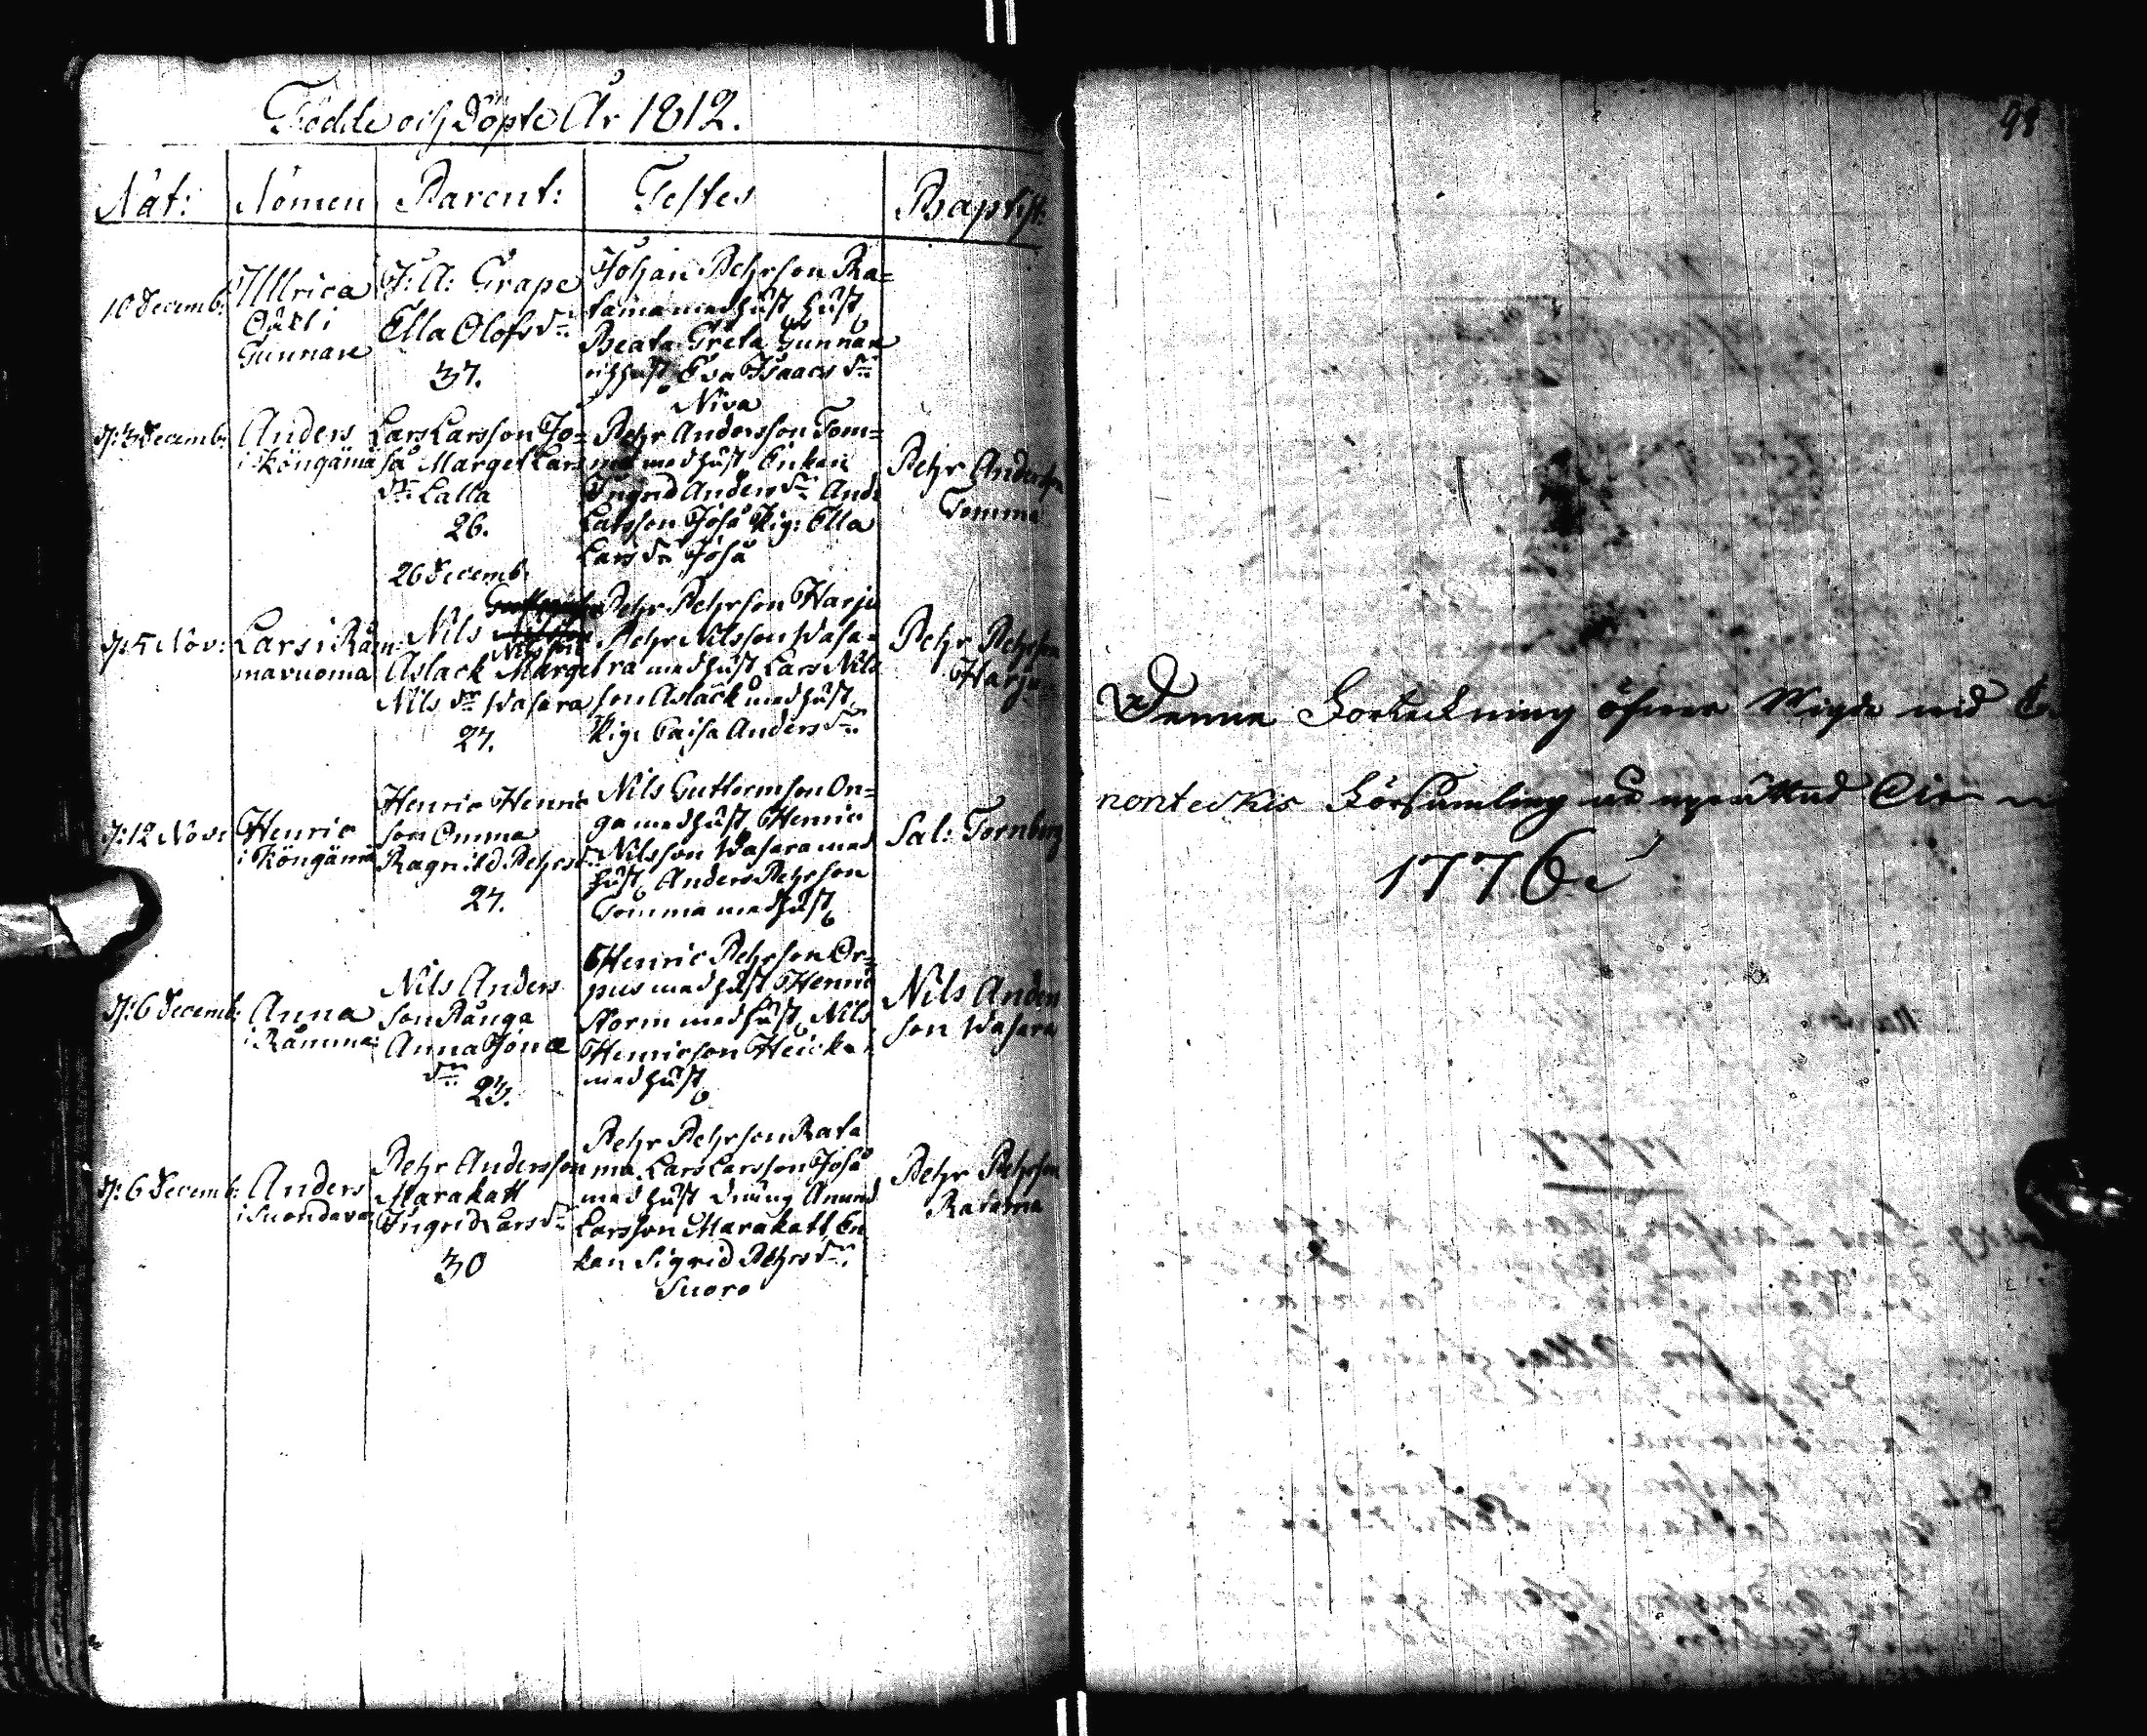 Födde och Döpte År 1812.
Nat: Nomen Parent: Testes Baptist:
10 Decemb: Ullrica
i
Gunnare
F: A: Grape
Ella Olofs dr
37.
Johan Pehrson Ra=
tama med hust hust
Beata Greta Gunnare
och hust Eva Isaacs dr
Niva
d: 3 Decemb: Anders
i Köngämä
Lars Larsson Jo=
sa Marget Lars
dr Lalla
26.
Pehr Andersson Tom=
ma med hust Enkan
Ingrid Anders dr And:
Larsson Josa Pig: Ella
Lars dr Josa
Pehr Anderson
Tomma
26 Decemb:
d: 5 Nov: Lars i Råm
mavuoma
Nils Nilsson
Aslack Marget
Nils dr Wasara
27.
Pehr Pehrson Harju
Pehr Nilsson Wasa=
ra med hust Lars Nils
son Aslack med hust
Pig: Caisa Anders dr
Pehr Pehrson
Harju
d: 12 Nov: Henric
i Köngämä
Henric Henric
son Omma
Ragnild Pehrs dr
27.
Nils Guttormson On=
ga med hust Henric
Nilsson Wasara med
hust Anders Pehrson
Tomma med hust
Sal: Tornberg
d: 6 Decemb: Anna
i Råmma
Nils Anders
son Rånga
Anna Jonæ
dr 23.
Henric Pehrson Or=
pus med hust Henric
Storm med hust Nils
Henricson Heicka
med hust
Nils Anders
son Wasara
d: 6 Decemb: Anders
i Suondava
Pehr Andersson
Marakatt
Ingrid Lars dr
30
Pehr Pehrson Rata
ma Lars Larsson Josa
med hust dräng Amund
Larsson Marakatt En
kan Sigrid Pehrs dr
Suoro
Pehr Pehrson
Ratama
Denna Forteckning öfwer Wigde wid E
nonteckis Församling är uprättad Åir
1776